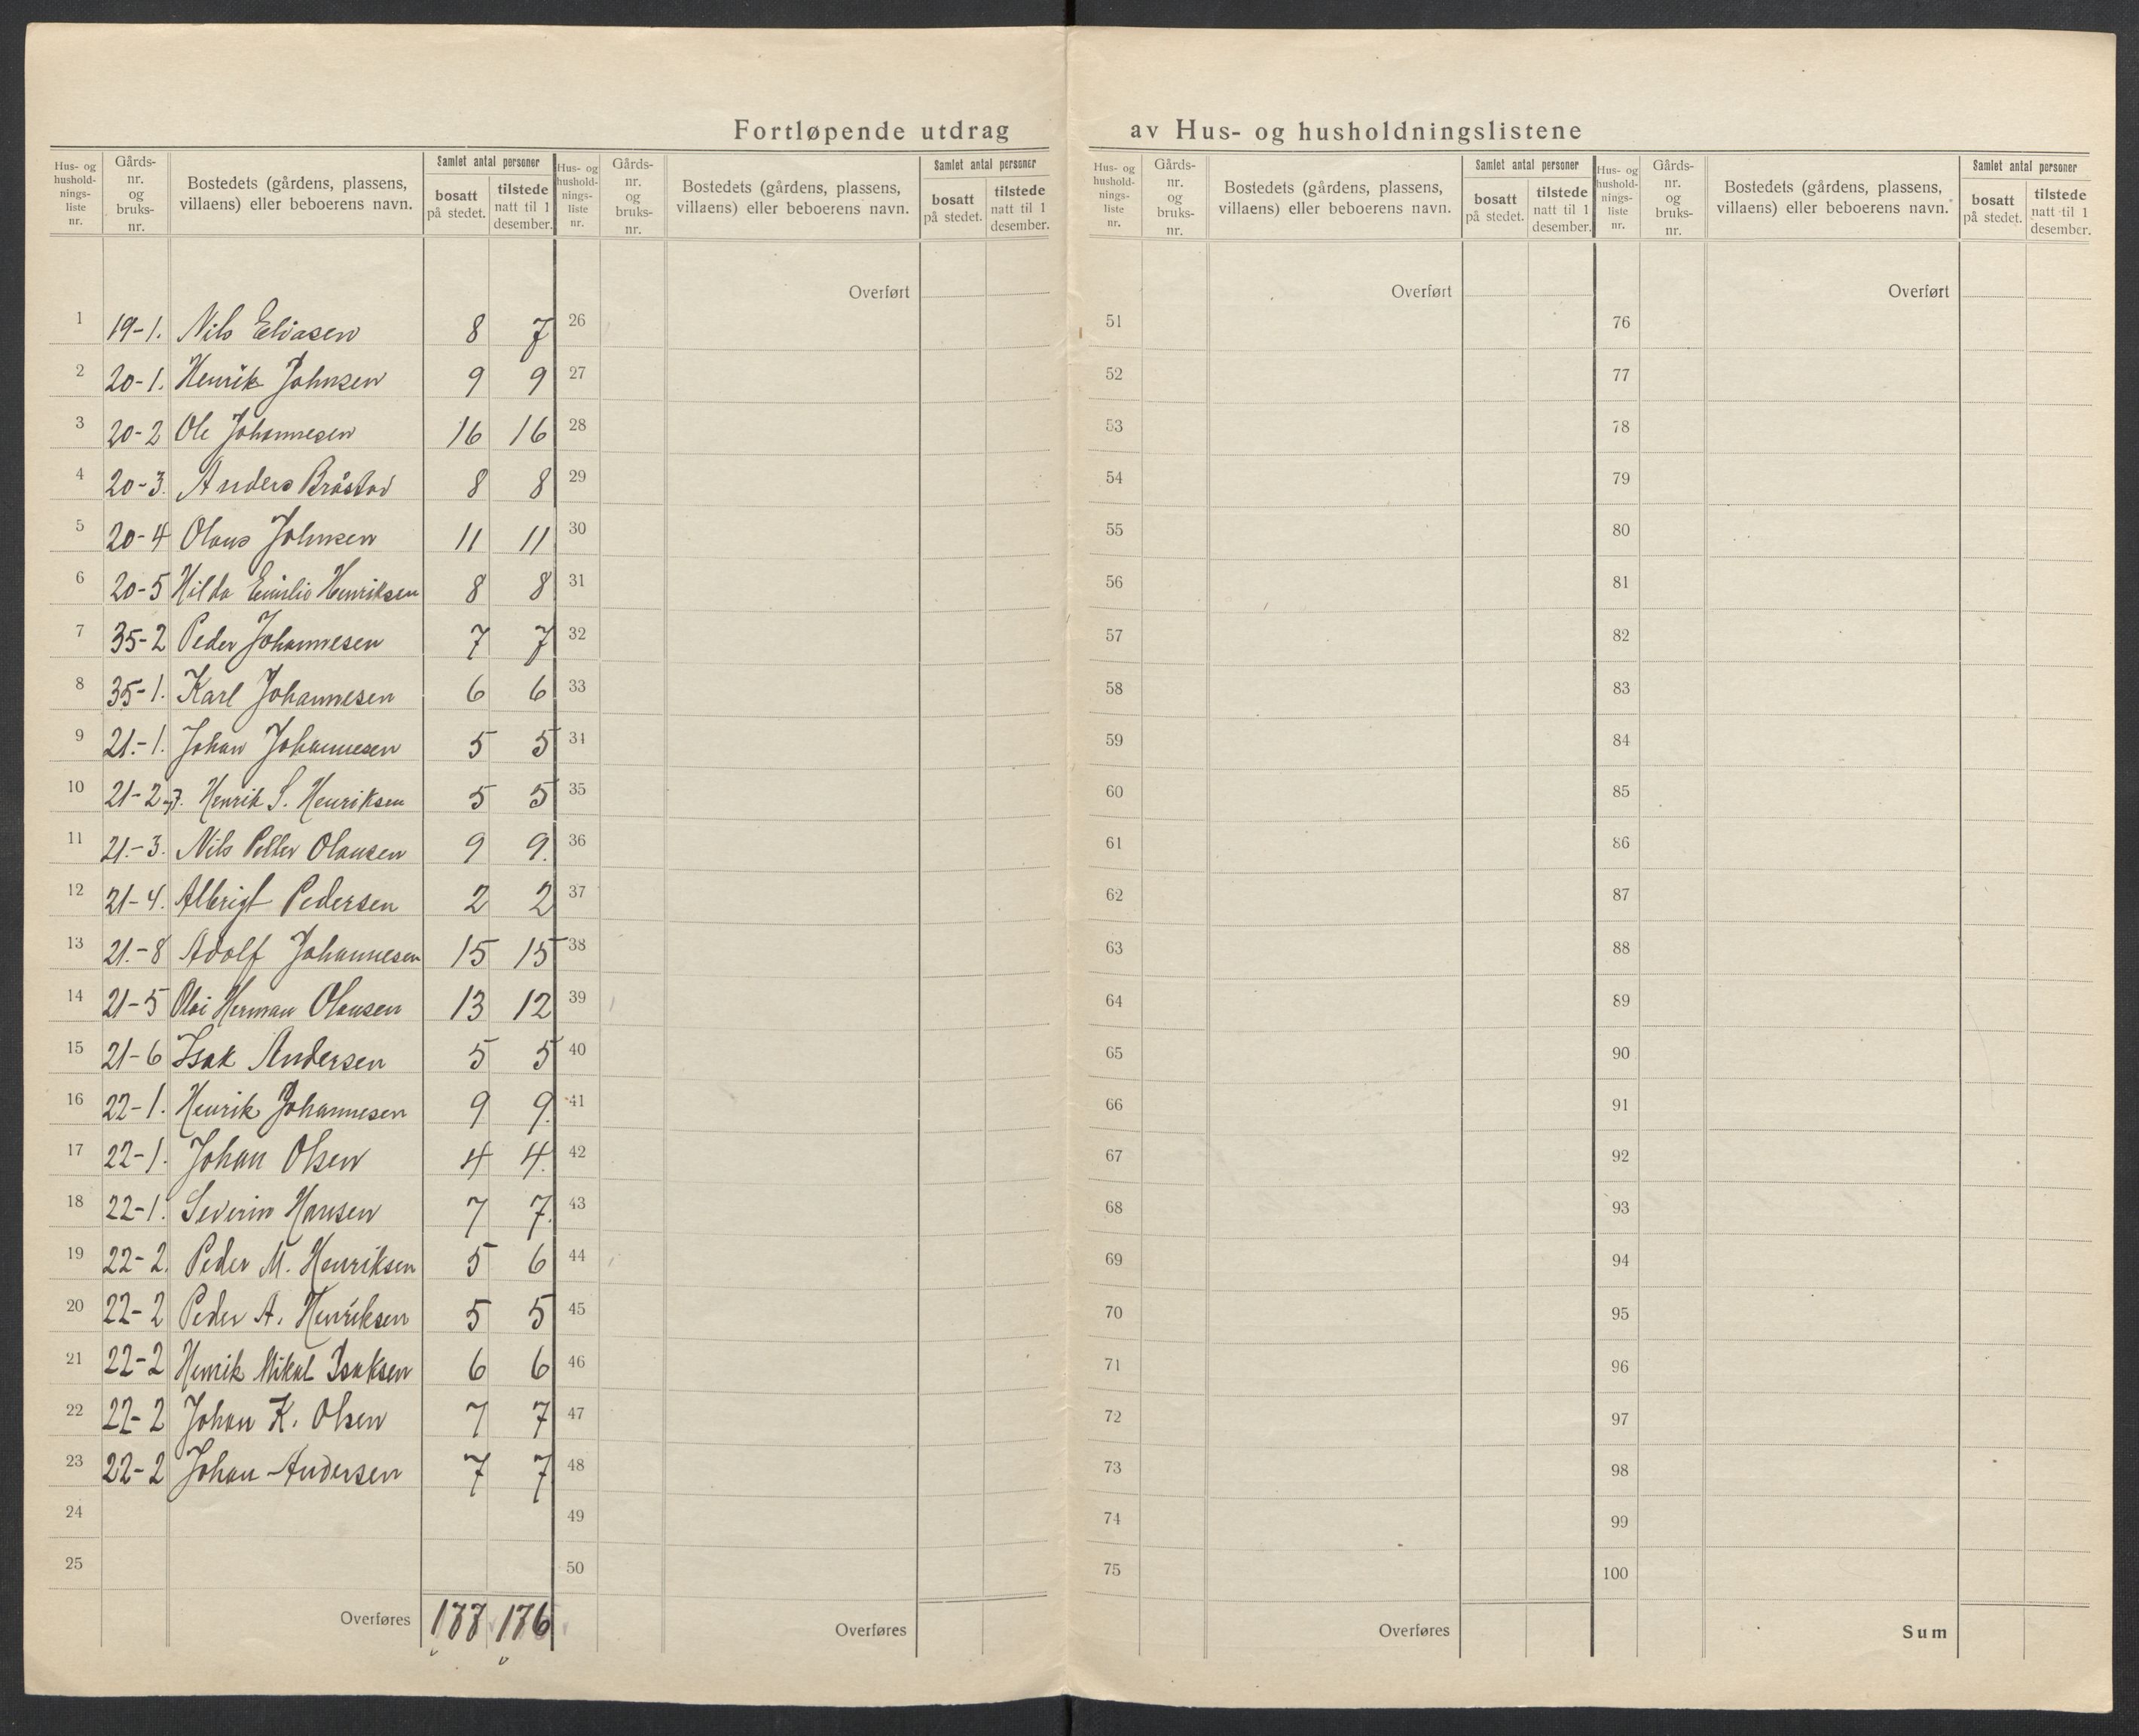 Fortløpende utdrag av Hus- og husholdningslistene
Hus- og husholdningsliste nr. | Gårds-nr. og bruks-nr. | Bostedets (gårdens, plassens, villaens) eller beboerens navn. | Samlet antal personer | bosatt på stedet. | tilstede natt til 1 desember.
1 19-1. Nils Eliasen 8 7
2 20-1. Henrik Johnsen 9 9
3 20-2 Ole Johannesen 16 16
4 20-3. Anders Bråstad 8 8
5 20-4 Olaus Johnsen 11 11
6 20-5 Hilda Emilie Henriksen 8 8
7 35-2 Peder Johannesen 7 7
8 35-1. Karl Johannesen 6 6
9 21.-1. Johan Johannesen 5 5
10 21-2-7. Henrik S. Henriksen 5 5
11 21.-3. Nils Petter Olausen 9 9.
12 21-4. Albrigt Pedersen 2 2
13 21.-8 Adolf Johannesen 15 15
14 21-5 Herman Olausen 13 12
15 21-6 Isak Andersen 5 5
16 22-1. Henrik Johannesen 9 9.
17 22-1. Johan Olsen 4 4.
18 22-1. Severin Hansen 7 7.
19 22-2. Peder M. Henriksen 5 6
20 22-2 Peder A. Henriksen 5 5
21 22-2 Henrik Mikal Isaksen 6 6
22 22-2 Johan K. Olsen 7 7
23 22-2 Johan Andersen 7 7
24
25
Overføres 177 176
Hus- og husholdningsliste nr. | Gårds-nr. og bruks-nr. | Bostedets (gårdens, plassens, villaens) eller beboerens navn. | Samlet antal personer | bosatt på stedet. | tilstede natt til 1 desember.
Overført
26
27
28
29
30
31
32
33
34
35
36
37
38
39
40
41
42
43
44
45
46
47
48
49
50
Overføres
Hus- og husholdningsliste nr. | Gårds-nr. og bruks-nr. | Bostedets (gårdens, plassens, villaens) eller beboerens navn. | Samlet antal personer | bosatt på stedet. | tilstede natt til 1 desember.
Overført
51
52
53
54
55
56
57
58
59
60
61
62
63
64
65
66
67
68
69
70
71
72
73
74
75
Overføres
Hus- og husholdningsliste nr. | Gårds-nr. og bruks-nr. | Bostedets (gårdens, plassens, villaens) eller beboerens navn. | Samlet antal personer | bosatt på stedet. | tilstede natt til 1 desember.
Overført
76
77
78
79
80
81
82
83
84
85
86
87
88
89
90
91
92
93
94
95
96
97
98
99
100
Sum